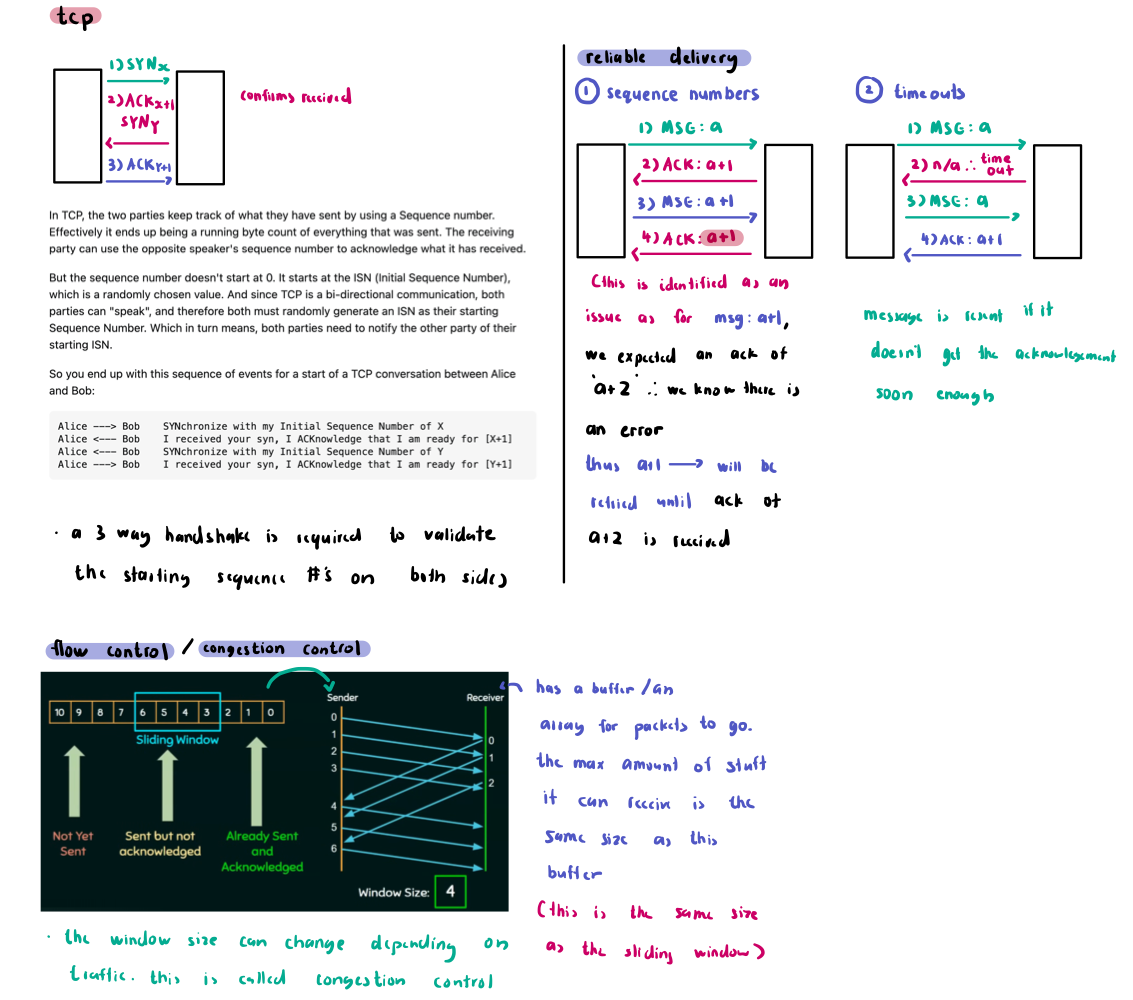 tcp
1) SYNx
2) ACKx+1
SYNY
3) ACKY+1
confirms received
In TCP, the two parties keep track of what they have sent by using a Sequence number.
Effectively it ends up being a running byte count of everything that was sent. The receiving
party can use the opposite speaker's sequence number to acknowledge what it has received.
But the sequence number doesn't start at 0. It starts at the ISN (Initial Sequence Number),
which is a randomly chosen value. And since TCP is a bi-directional communication, both
parties can "speak", and therefore both must randomly generate an ISN as their starting
Sequence Number. Which in turn means, both parties need to notify the other party of their
starting ISN.
So you end up with this sequence of events for a start of a TCP conversation between Alice
and Bob:
Alice ---> Bob    SYNchronize with my Initial Sequence Number of X
Alice <--- Bob    I received your syn, I ACKnowledge that I am ready for [X+1]
Alice <--- Bob    SYNchronize with my Initial Sequence Number of Y
Alice ---> Bob    I received your syn, I ACKnowledge that I am ready for [Y+1]
· a 3 way handshake is required to validate
the starting sequence #'s on both sides
reliable delivery
① sequence numbers
1) MSG: a
2) ACK: a+1
3) MSG: a+1
4) ACK: a+1
(this is identified as an
issue as for msg: a+1,
we expected an ack of
'a+2' ∴ we know there is
an error
thus a+1 → will be
retried until ack of
a+2 is received
② timeouts
1) MSG: a
2) n/a ∴ time
out
3) MSG: a
4) ACK: a+1
message is resent if it
doesn't get the acknowlegement
soon enough
flow control / congestion control
10 9 8 7 6 5 4 3 2 1 0
Sliding Window
Not Yet
Sent
Sent but not
acknowledged
Already Sent
and
Acknowledged
Sender
Receiver
0
1
2
3
4
5
6
0
1
2
Window Size: 4
has a buffer / an
array for packets to go.
the max amount of stuff
it can receive is the
same size as this
buffer
(this is the same size
as the sliding window)
· the window size can change depending on
traffic. this is called congestion control